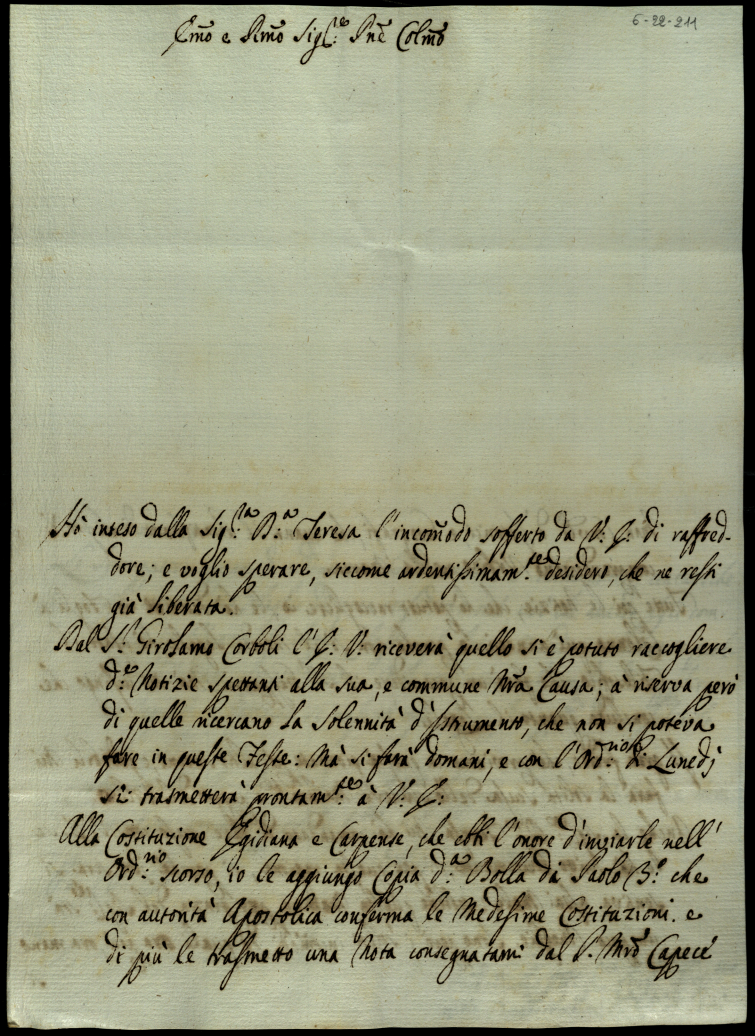 6-22-211
Emo e Rmo Sig.re Pne Colmo
Hò inteso dalla Sig.ra D.a Teresa l'incomodo sofferto da V: E: di raffred-
dore; e voglio sperare, siccome ardentissimam.te desidero, che ne resti
già liberata.
Dal S.r Girolamo Corboli l'E: V: riceverà quello si è potuto raccogliere
d.e Notizie spettanti alla sua, e commune Nra Causa; à riserva però
di quelle ricercano la solennità d'Istrumento, che non si poteva
fare in queste Feste: Mà si farà domani, e con l'Ord.rio di Lunedj
si trasmetterà prontam.te à V: E:
Alla Costituzione Egidiana e Carpense, che ebbi l'onore d'inviarle nell'
Ord.rio scorso, io le aggiungo Copia d.a Bolla di Paolo 3.o che
con autorità Apostolica conferma le Medesime Costituzioni. e
di più le trasmetto una Nota consegnatami dal P. Mro Capece